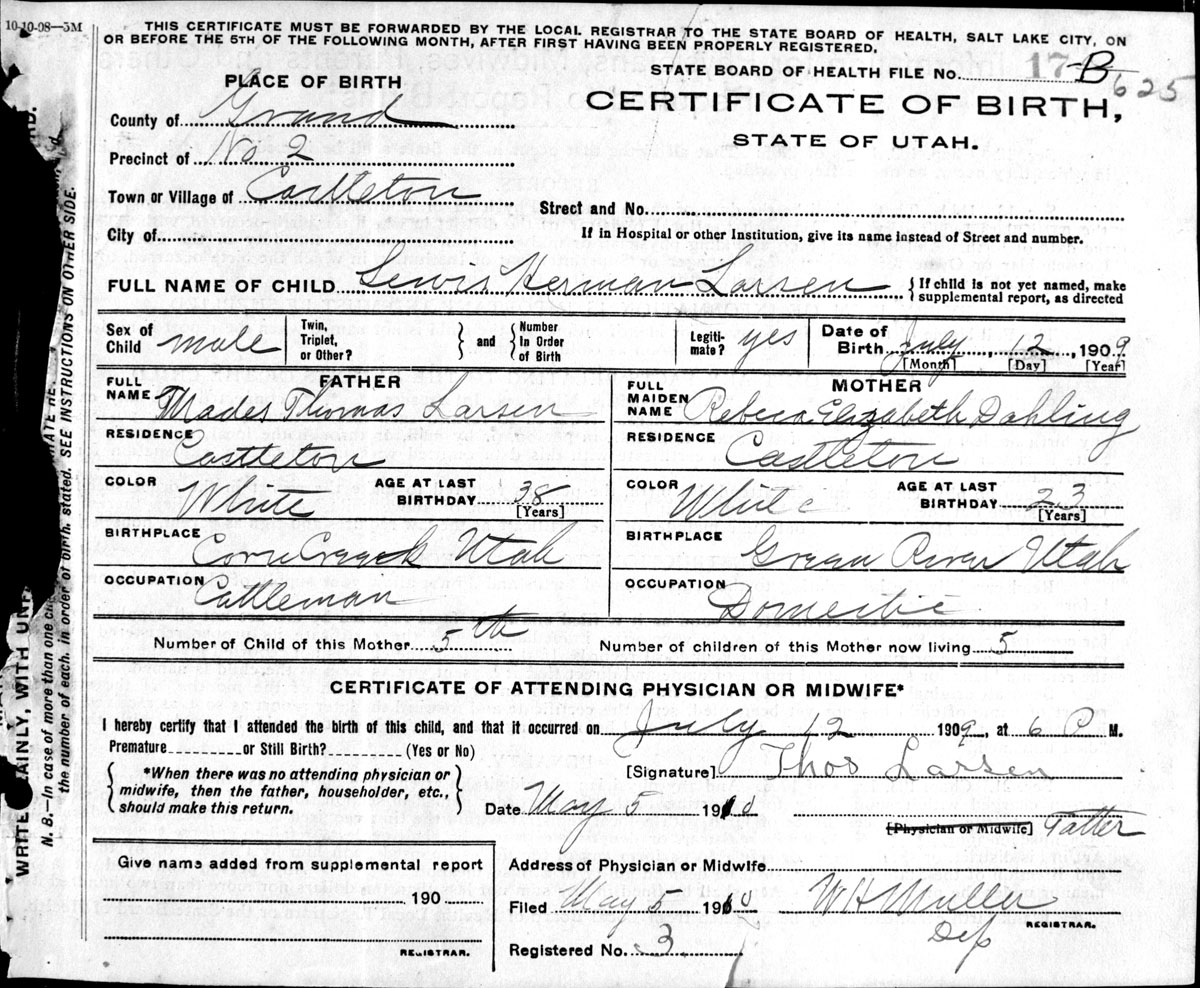 10-10-08—5M
THIS CERTIFICATE MUST BE FORWARDED BY THE LOCAL REGISTRAR TO THE STATE BOARD OF HEALTH, SALT LAKE CITY, ON
OR BEFORE THE 5TH OF THE FOLLOWING MONTH, AFTER FIRST HAVING BEEN PROPERLY REGISTERED.
PLACE OF BIRTH
STATE BOARD OF HEALTH FILE No. 17-B 625
CERTIFICATE OF BIRTH,
STATE OF UTAH.
County of Grand
Precinct of No 2
Town or Village of Castleton
Street and No.
City of
If in Hospital or other Institution, give its name instead of Street and number.
FULL NAME OF CHILD Lewis Herman Larsen { If child is not yet named, make supplemental report, as directed
Sex of Child male Twin, Triplet, or Other? } and { Number In Order of Birth Legiti- mate? yes Date of Birth July, 12, 1909
[Month] [Day] [Year]
FATHER
FULL NAME Mades Thomas Larsen
RESIDENCE Castleton
COLOR White AGE AT LAST BIRTHDAY 38 [Years]
BIRTHPLACE Corn Creek Utah
OCCUPATION Cattleman
MOTHER
FULL MAIDEN NAME Rebeca Elizabeth Dahling
RESIDENCE Castleton
COLOR White AGE AT LAST BIRTHDAY 23 [Years]
BIRTHPLACE Green River Utah
OCCUPATION Domestic
Number of Child of this Mother 5th Number of children of this Mother now living 5
CERTIFICATE OF ATTENDING PHYSICIAN OR MIDWIFE*
I hereby certify that I attended the birth of this child, and that it occurred on July 12 1909, at 6 P M.
Premature or Still Birth? (Yes or No)
[Signature] Thos Larsen
{ *When there was no attending physician or
midwife, then the father, householder, etc.,
should make this return. }
Date May 5 1910
[Physician or Midwife] Father
Give name added from supplemental report
190
REGISTRAR.
Address of Physician or Midwife
Filed May 5 1910 W H Muller
Dep REGISTRAR.
Registered No. 3
WRITE PLAINLY, WITH UNF
N. B.—In case of more than one c
the number of each, in order of birth, stated. SEE INSTRUCTIONS ON OTHER SIDE.